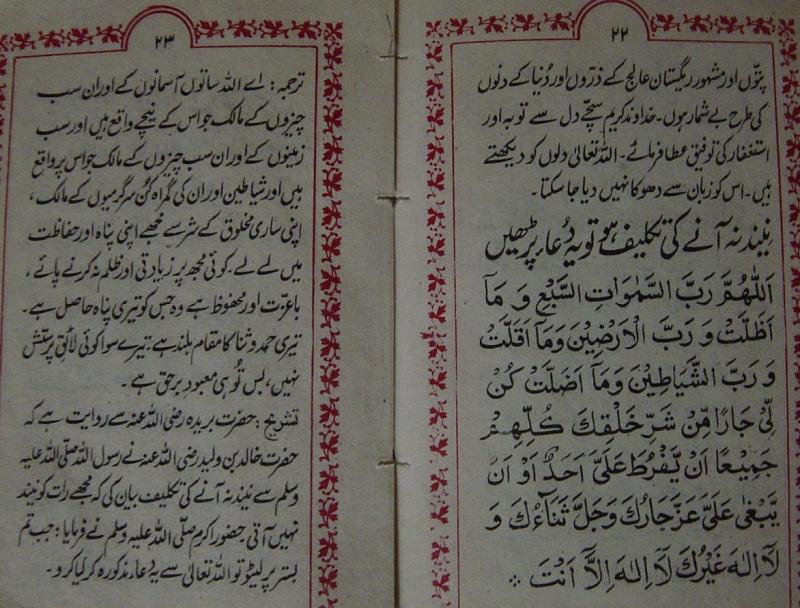 ۲۲
پتّوں اور مشہور ریگستان عالج کے ذرّوں اور دُنیا کے دنوں
کی طرح بے شمار ہوں۔ خداوند کریم سچّے دل سے توبہ اور
استغفار کی توفیق عطا فرمائے۔ اللہ تعالیٰ دلوں کو دیکھتے
ہیں۔ اس کو زبان سے دھوکا نہیں دیا جا سکتا۔
نیند نہ آنے کی تکلیف ہو تو یہ دُعاء پڑھیں
اَللّٰهُمَّ رَبَّ السَّمٰوَاتِ السَّبْعِ وَ مَآ
اَظَلَّتْ وَ رَبَّ الْاَرْضِيْنَ وَمَآ اَقَلَّتْ
وَ رَبَّ الشَّيَاطِيْنَ وَمَآ اَضَلَّتْ كُنْ
لِّيْ جَارًا مِّنْ شَرِّ خَلْقِكَ كُلِّهِمْ
جَمِيْعًا اَنْ يَّفْرُطَ عَلَيَّ اَحَدٌ اَوْ اَنْ
يَّبْغٰى عَلَيَّ عَزَّ جَارُكَ وَجَلَّ ثَنَآءُكَ وَ
لَآ اِلٰهَ غَيْرُكَ لَآ اِلٰهَ اِلَّآ اَنْتَ
۲۳
ترجمہ: اے اللہ ساتوں آسمانوں کے اور ان سب
چیزوں کے مالک جو اس کے نیچے واقع ہیں اور سب
زمینوں کے اور ان سب چیزوں کے مالک جو اس پر واقع
ہیں اور شیاطین اور ان کی گمراہ کُن سرگرمیوں کے مالک،
اپنی ساری مخلوق کے شر سے مجھے اپنی پناہ اور حفاظت
میں لے لے۔ کوئی مجھ پر زیادتی اور ظلم نہ کرنے پائے،
باعزّت اور محفوظ ہے وہ جس کو تیری پناہ حاصل ہے۔
تیری حمد و ثنا کا مقام بلند ہے، تیرے سوا کوئی لائقِ پرستش
نہیں، بس تُو ہی معبود برحق ہے۔
تشریح: حضرت بریدہ رضی اللہ عنہ سے روایت ہے کہ
حضرت خالد بن ولید رضی اللہ عنہ نے رسول اللہ صلّی اللہ علیہ
وسلم سے نیند نہ آنے کی تکلیف بیان کی کہ مجھے رات کو نیند
نہیں آتی۔ حضور اکرم صلّی اللہ علیہ وسلم نے فرمایا: جب تم
بستر پر لیٹو تو اللہ تعالیٰ سے یہ دُعاء مذکورہ کر لیا کرو۔